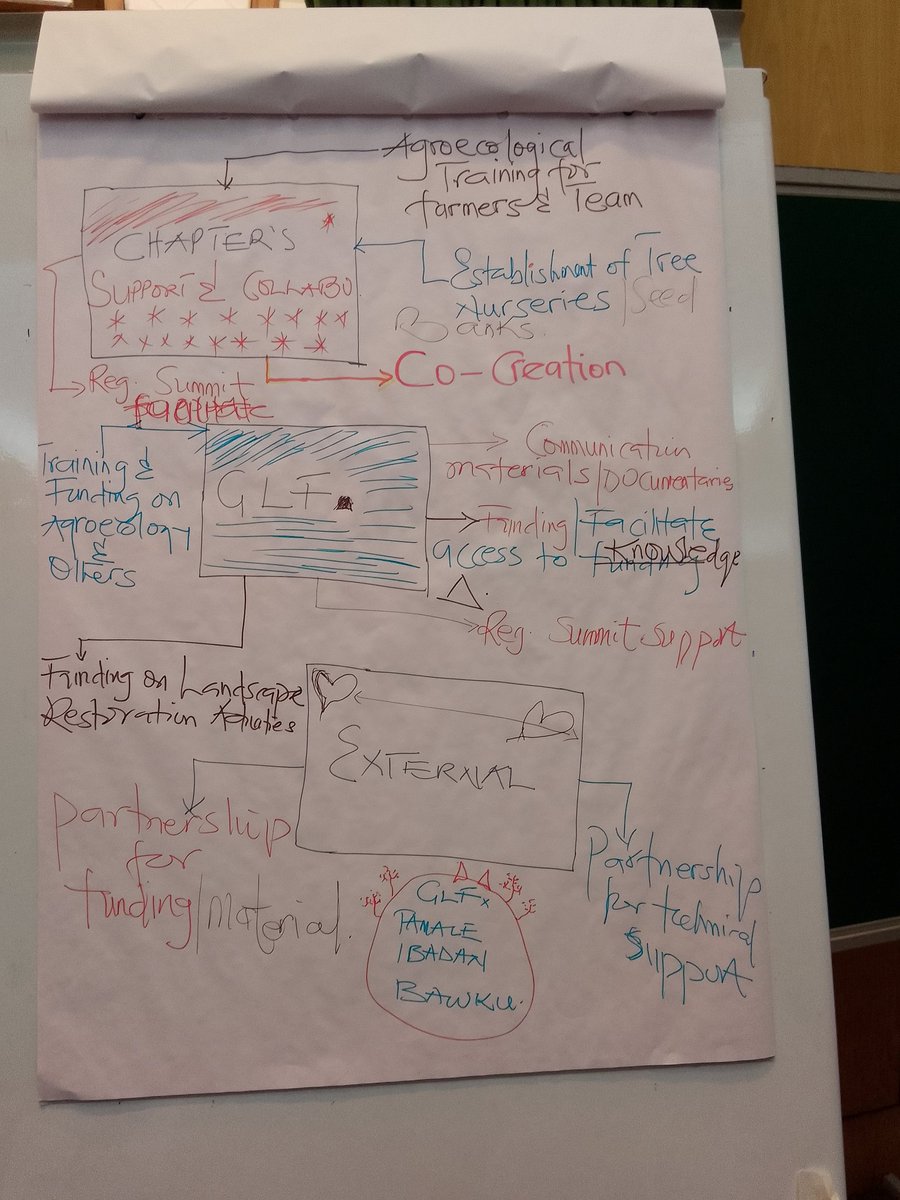 Agroecological
Training for
farmers & Team
CHAPTER'S
SUPPORT & COLLABO
Establishment of Tree
Nurseries / Seed
Banks.
Co-Creation
Reg. Summit
facilitate
Training &
Funding on
Agroecology
&
Others
GLF
Communication
materials/Documentaries
Funding / Facilitate
access to funding Knowledge
Reg. Summit Support
Funding on Landscape
Restoration Activities
EXTERNAL
Partnership
for
funding/material.
Partnership
for technical
support
GLFx
PAMALE
IBADAN
BAWKU.